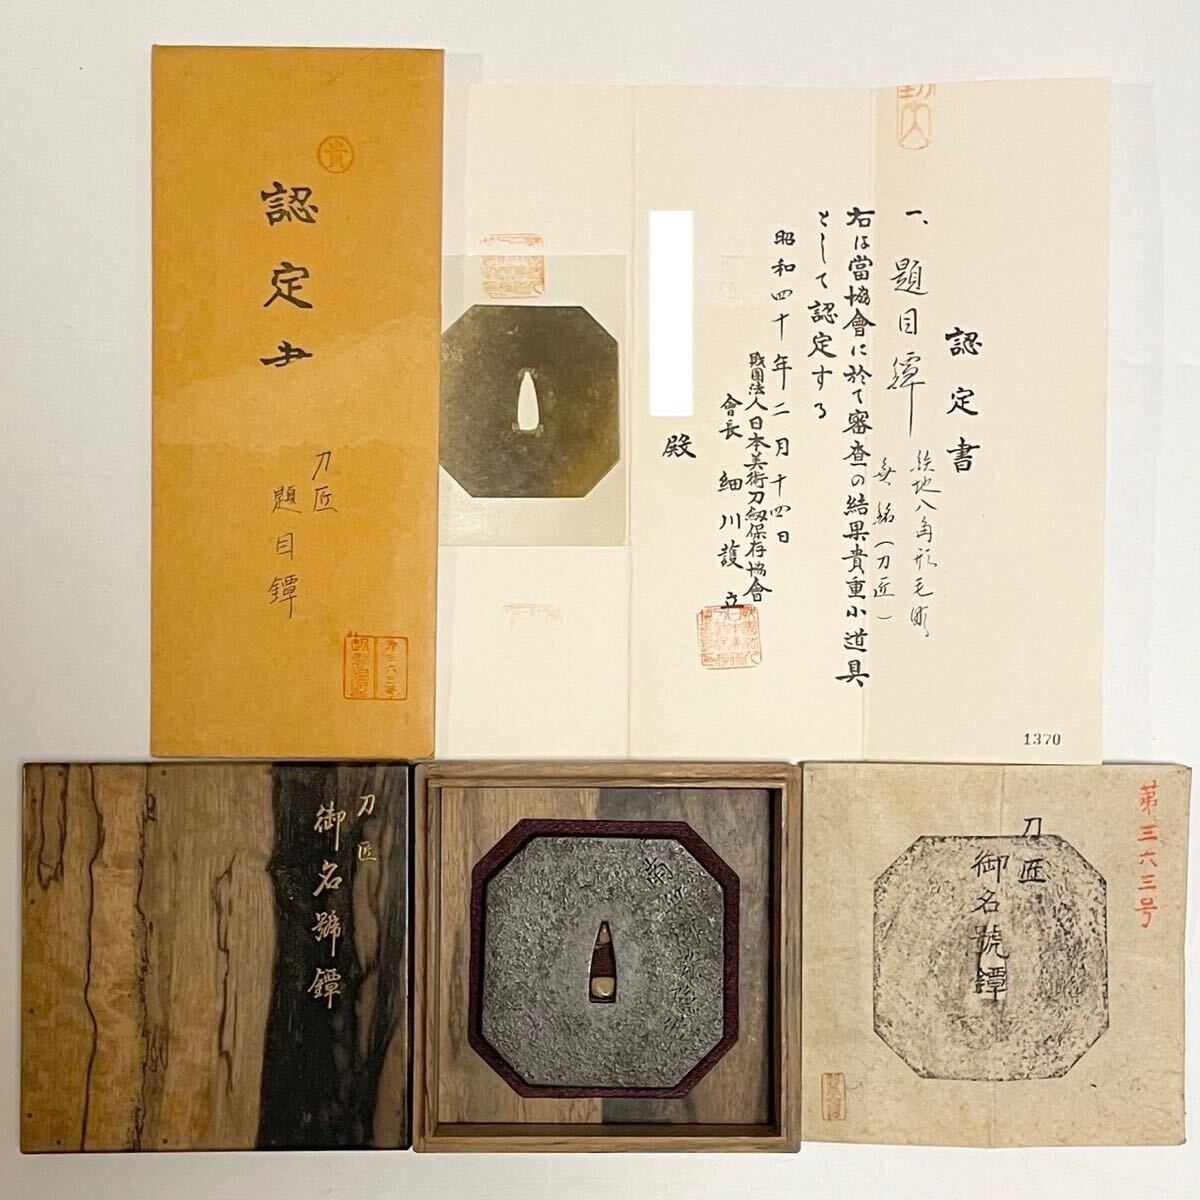 貴
認定書
刀匠
題目鐔
第三六三号
認定書
一、題目鐔
鉄地八角形毛彫
無銘(刀匠)
右は當協會に於て審査の結果貴重小道具
として認定する
昭和四十年二月十四日
財團法人日本美術刀劔保存協會
會長 細川護立
殿
1370
刀匠
御名號鐔
南無
第三六三号
刀匠
御名號鐔